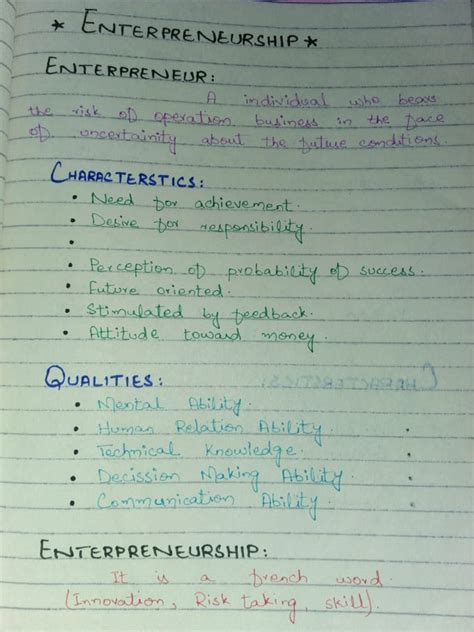 * ENTERPRENEURSHIP *
ENTERPRENEUR:
A individual who bears
the risk of operation business in the face
of uncertainity about the future conditions.
CHARACTERSTICS:
• Need for achievement.
• Desire for responsibility.
•
• Perception of probability of success.
• Future oriented.
• Stimulated by feedback.
• Attitude toward money.
QUALITIES:
• Mental Ability.
• Human Relation Ability.
• Technical Knowledge.
• Decission Making Ability.
• Communication Ability.
ENTERPRENEURSHIP:
It is a french word.
(Innovation, Risk taking, skill).